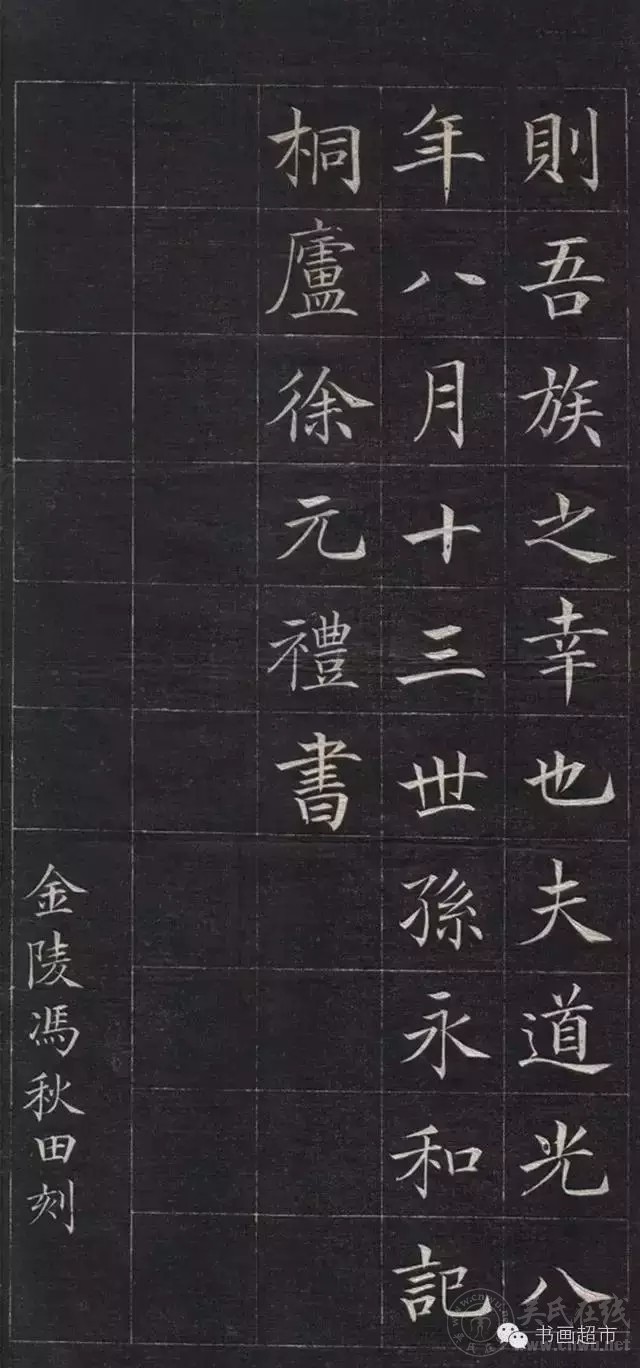 則吾族之幸也夫道光八
年八月十三世孫永和記
桐廬徐元禮書
金陵馮秋田刻
吴氏在线
书画超市